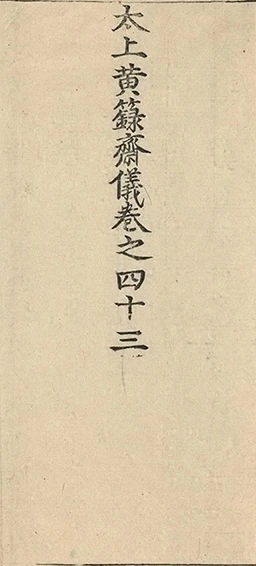 太上黄籙齋儀卷之四十三